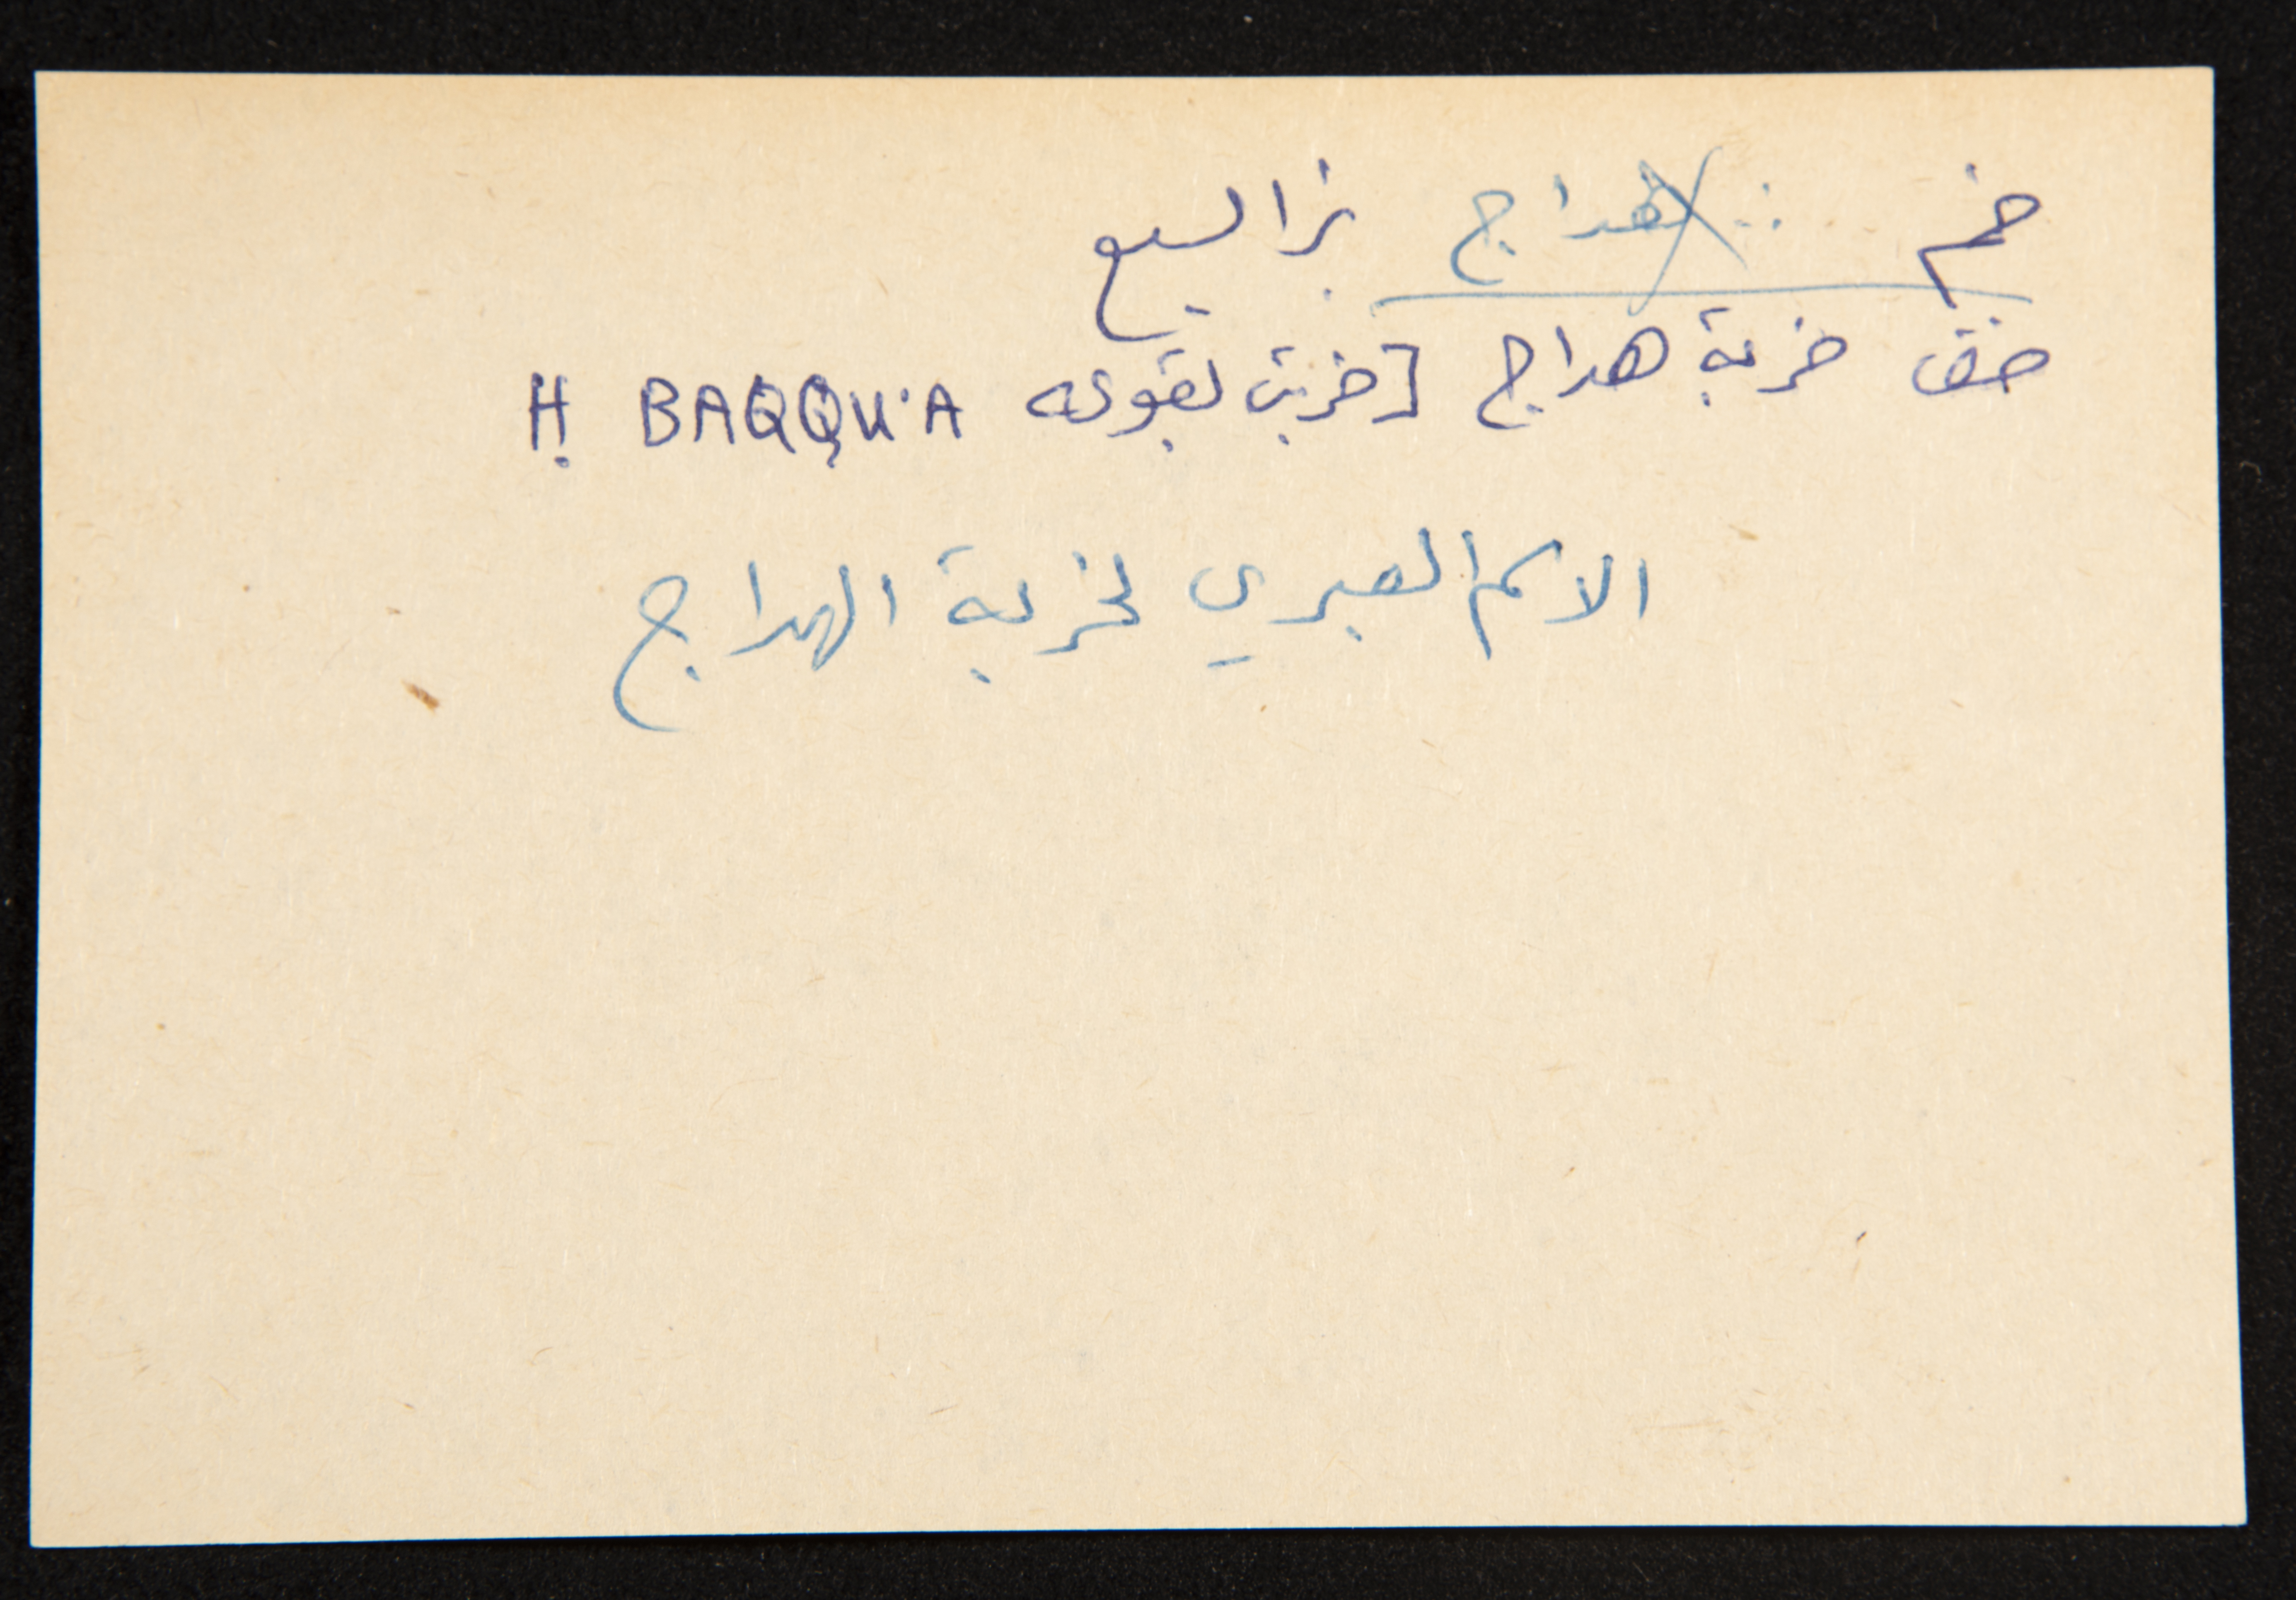 خم هداج بئر السبع
خف خربة هداج [خربت بقوعه H. BAQQU'A
الاسم العبري لخربة الهداج